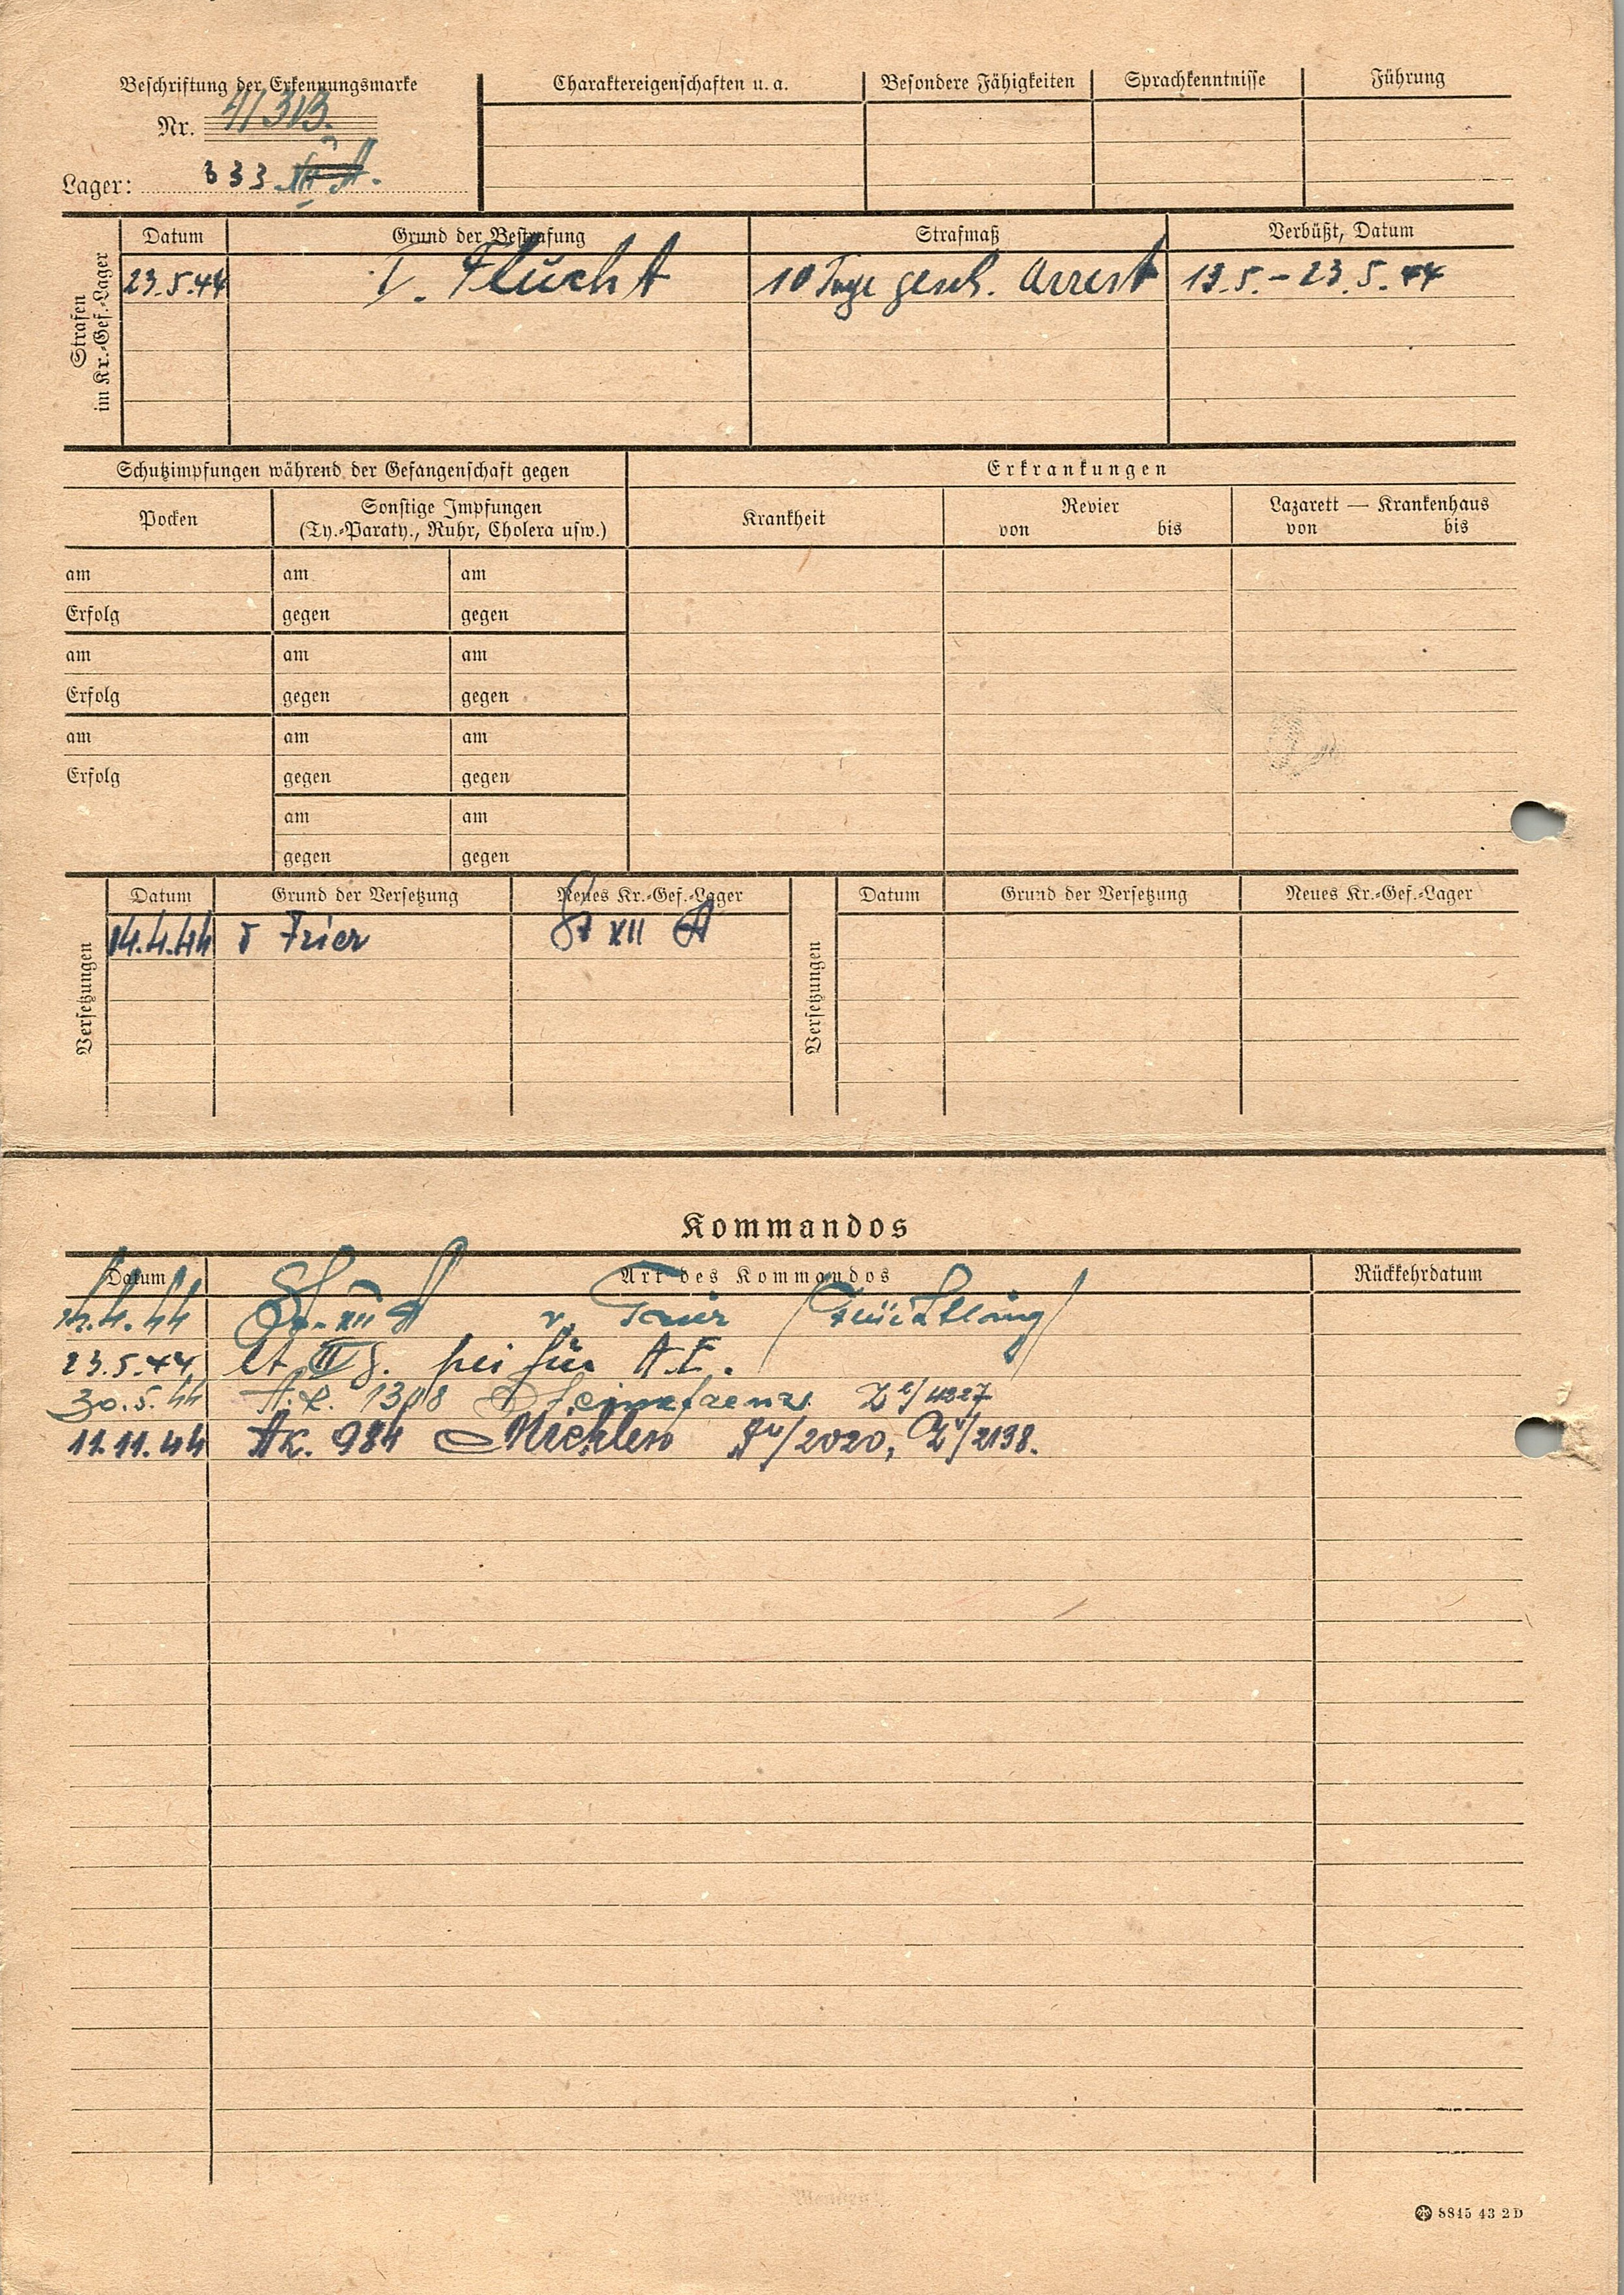 Beschriftung der Erkennungsmarke
Nr. 41313.
Lager: 333
Charaktereigenschaften u. a.
Besondere Fähigkeiten
Sprachkenntnisse
Führung
Strafen
im Kr.-Gef.-Lager
Datum
Grund der Bestrafung
Strafmaß
Verbüßt, Datum
23.5.44
I. Flucht
10 Tage gesch. Arrest
13.5.-23.5.44
Schutzimpfungen während der Gefangenschaft gegen
Erkrankungen
Pocken
Sonstige Impfungen
(Ty.-Paraty., Ruhr, Cholera usw.)
Krankheit
Revier
von bis
Lazarett — Krankenhaus
von bis
am am am
Erfolg gegen gegen
am am am
Erfolg gegen gegen
am am am
Erfolg gegen gegen
am am
gegen gegen
Versetzungen
Datum
Grund der Versetzung
Neues Kr.-Gef.-Lager
14.4.44
v Trier
St XII A
Versetzungen
Datum
Grund der Versetzung
Neues Kr.-Gef.-Lager
Kommandos
Datum
Art des Kommandos
Rückkehrdatum
14.4.44 St. XII A v. Trier (Flüchtling)
23.5.44 für A.E.
30.5.44 1308
11.11.44 AK. 984 Michlen /2020, /2198.
8845 43 2 D